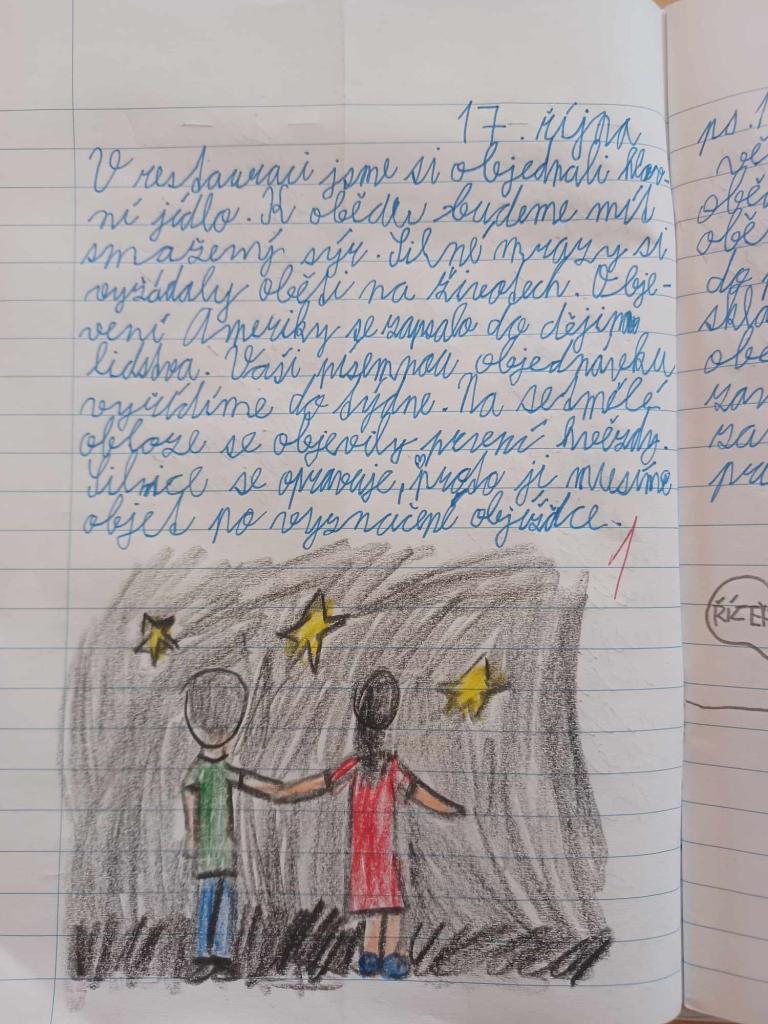 17. října
V restauraci jsme si objednali hlav-
ní jídlo. K obědu budeme mít
smažený sýr. Silné mrazy si
vyžádaly oběti na životech. Obje-
vení Ameriky se zapsalo do dějin
lidstva. Vaši písemnou objednávku
vyřídíme do týdne. Na setmělé
obloze se objevily první hvězdy.
Silnice se opravuje, proto ji musíme
objet po vyznačené objížďce.
1
ps. 1
vě
obě
obě
do
skla
obe
zan
za
pr
ŘÍZEK